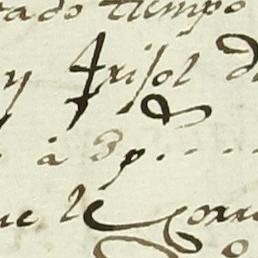 tado tiempo
y Frisol d
à 3p....
ue le Corr